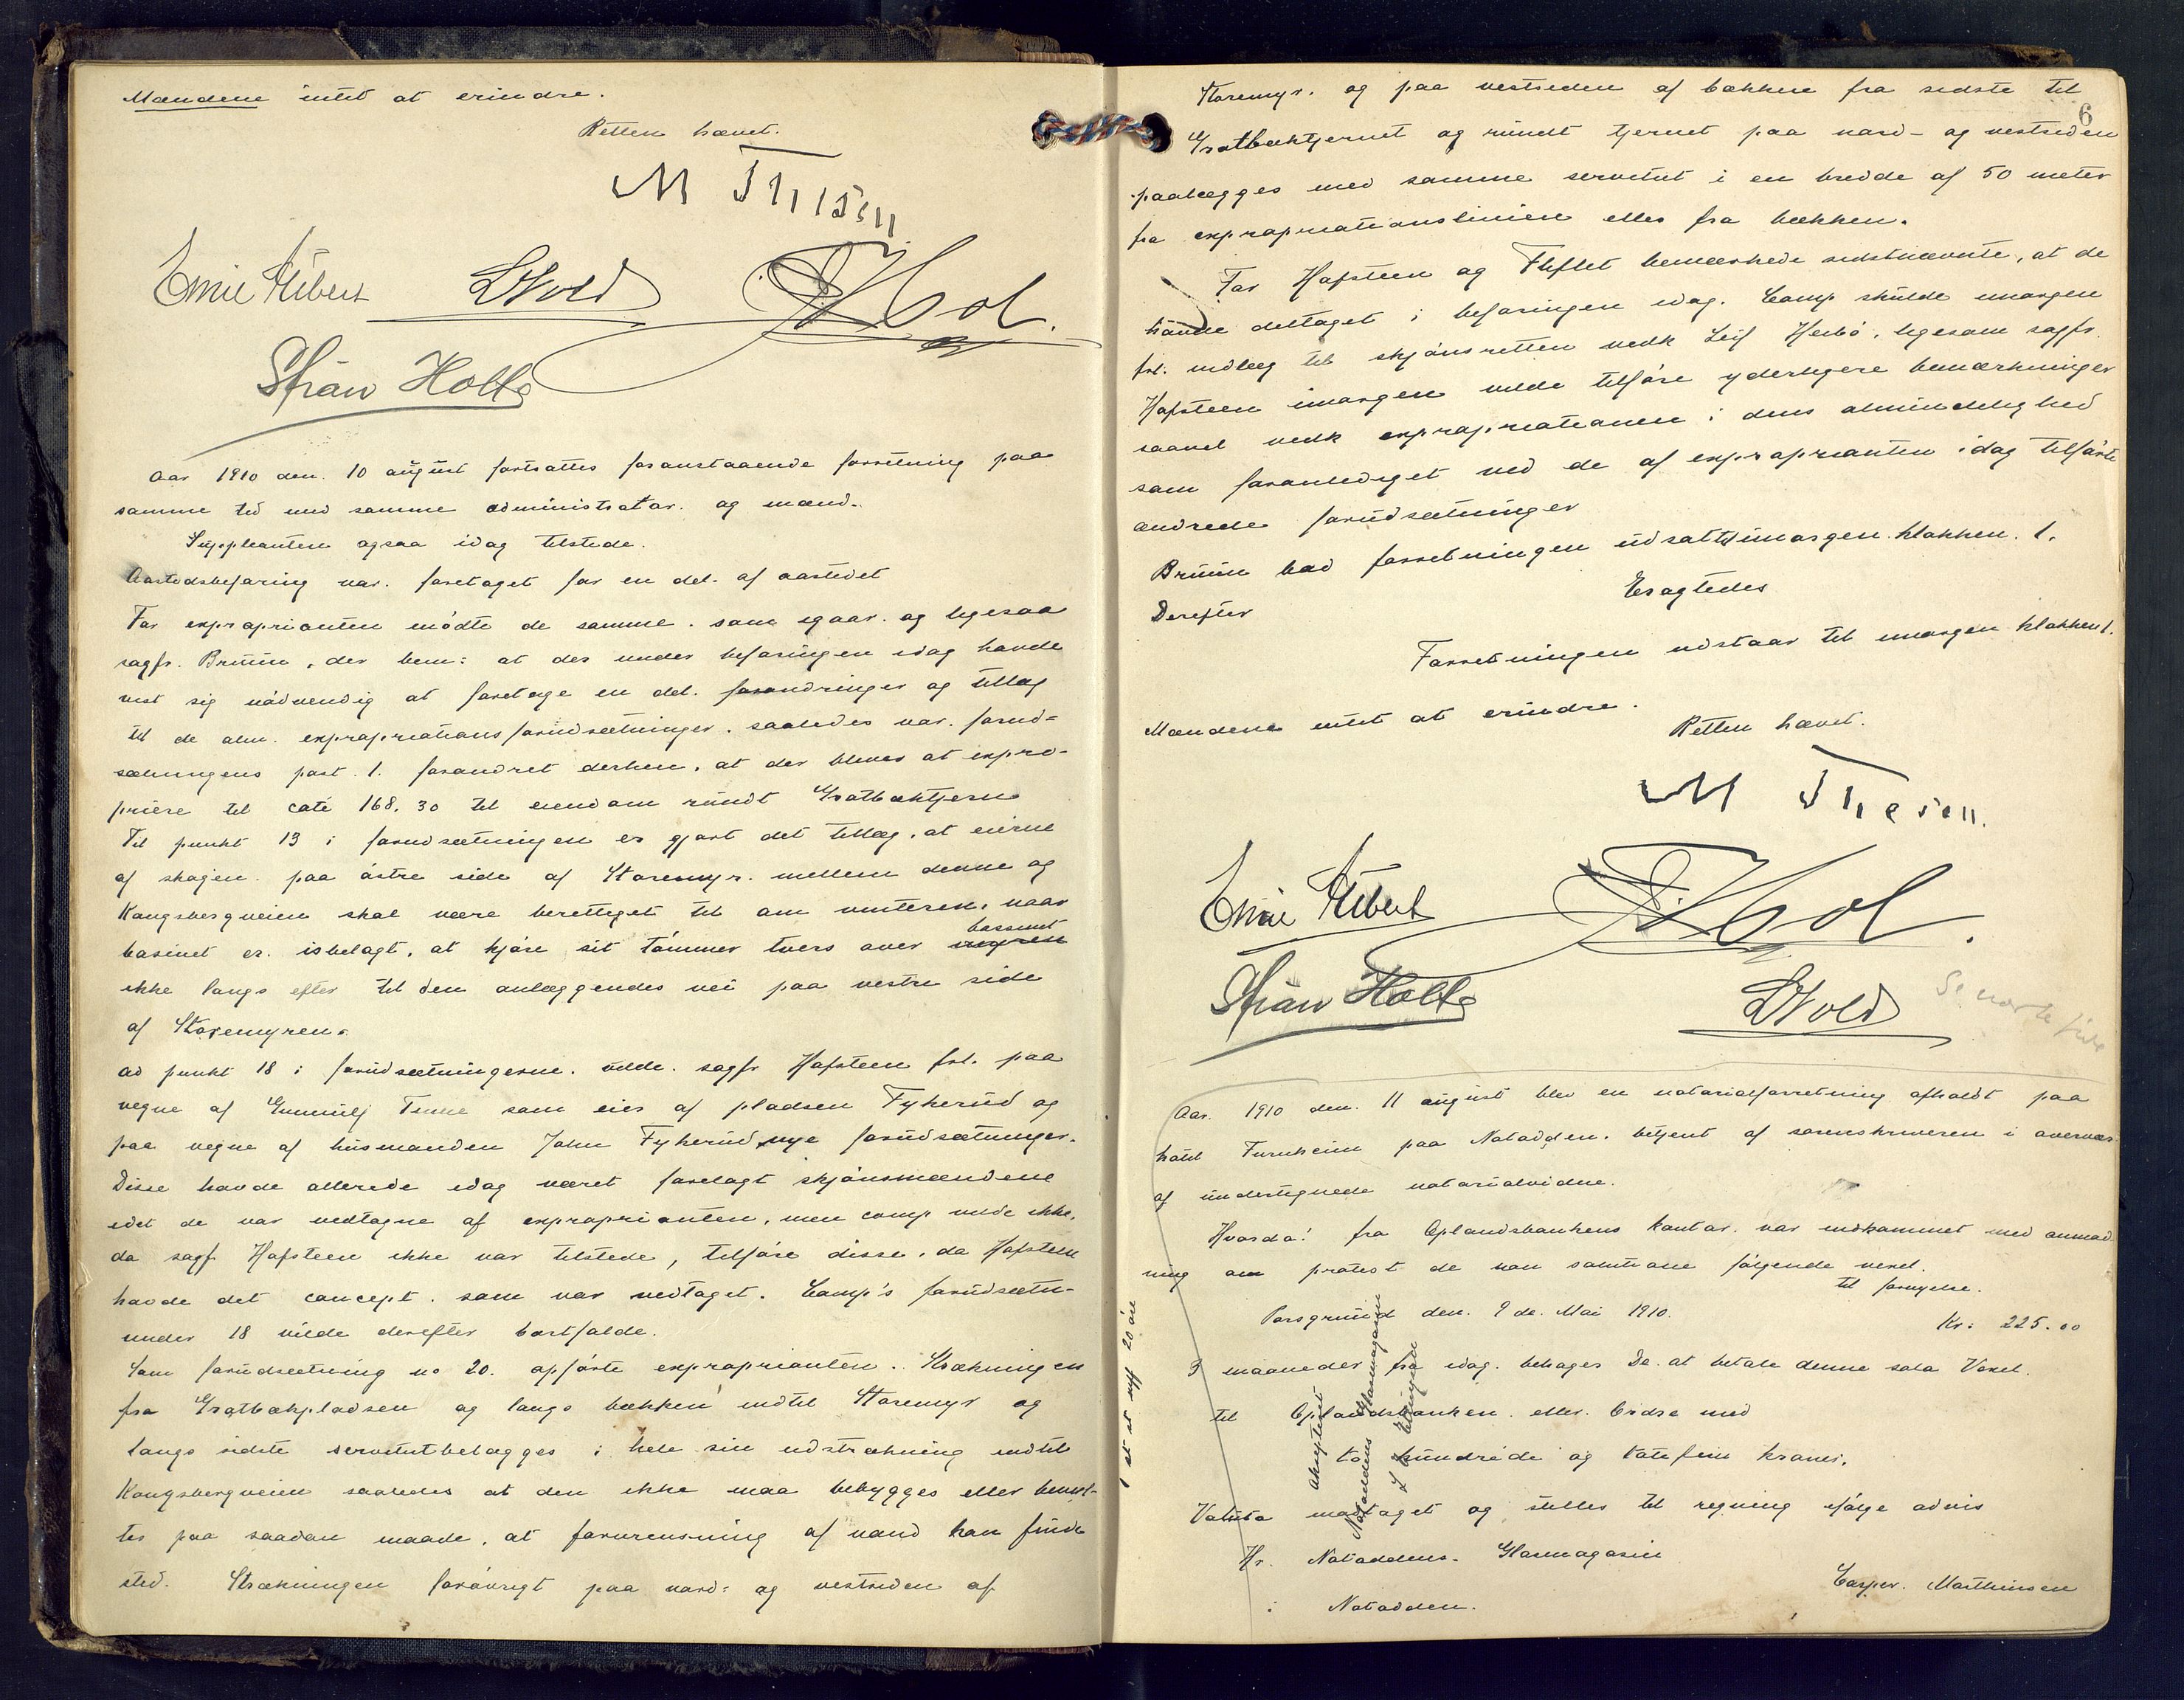 Mændene intet at erindre.
Retten hævet.
M Thesen
Emil Stibert LWold Hol.
Stian Holte
Aar 1910 den 10 august fortsattes foranstaaende forretning paa
samme sted med samme administrator og mænd.
Suppleanten ogsaa idag tilstede.
Aastedsbefaring var foretaget for en del af aastedet
For exproprianten mødte de samme som igaar og ligesaa
sagfr. Bruun, der bem: at der under befaringen idag havde
vist sig nødvendig at foretage en del forandringer og tillæg
til de alm. expropriationsforudsætninger, saaledes var forud-
sætningens post 1. forandret derhen, at der bliver at expro-
priere til cote 168.30 til eiendom rundt Grotbæktjern
Til punkt 13 i forudsætningen er gjort det tillæg, at eierne
af skogen paa østre side af Storemyr mellem denne og
Kongsbergveien skal være berettiget til om vinteren, naar
bassinet
basinet er isbelagt, at kjøre sit tømmer tvers over
ikke langs efter til den anlæggendes vei paa vestre side
af Storemyren.
ad punkt 18 i forudsætningerne vilde sagfr Hafsteen frl. paa
vegne af Gunnulf Tinne som eier af pladsen Fykerud og
paa vegne af husmanden John Fykerud nye forudsætninger.
Disse havde allerede idag været forelagt skjønsmændene
idet de var vedtagne af exproprianten, men comp vilde ikke,
da sagf. Hafsteen ikke var tilstede, tilføre disse, da Hafsteen
havde det concept som var vedtaget. Comp's forudsætn-
under 18 vilde derefter bortfalde.
Som forudsætning no 20. opførte exproprianten: Strækningen
fra Grotbækpladsen og langs bækken indtil Storemyr og
langs sidste servitutbelægges i hele sin udstrækning indtil
Kongsbergveien saaledes at den ikke maa bebygges eller benyt-
tes paa saadan maade, at forurensning af vand kan finde
sted. Strækningen forøvrigt paa nord- og vestsiden af
6
Storemyr. og paa vestsiden af bækken fra sidste til
Grotbæktjernet og rundt tjernet paa nord- og vestsiden
paalægges med samme servitut i en bredde af 50 meter
fra expropriationslinien eller fra bækken.
For Hafsteen og Fliflet bemærkede sidstnævnte, at de
havde deltaget i befaringen idag. Comp skulde imorgen
frl. indlæg til skjønsretten vedk Leif Herbø, ligesom sagfr.
Hafsteen imorgen vilde tilføre yderligere bemærkninger
saavel vedk expropriationen i dens almindelighed
som foranlediget ved de af exproprianten idag tilførte
ændrede forudsætninger
Bruun bad forretningen udsat til imorgen klokken 1.
Eragtedes
Derefter
Forretningen udstaar til imorgen klokken 1.
Mændene intet at erindre.
Retten hævet.
M Thesen.
Emil Stibert Hol.
Stian Holte LWold
Se næste side
Aar 1910 den 11 august blev en notarialforretning afholdt paa
hotel Furuheim paa Notodden, betjent af sorenskriveren i overvær
af undertegnede notarialvidne.
Hvorda: fra Oplandsbankens kontor var indkommet med anmod
ning om protest de non solutione følgende vexel.
til fornyelse.
Porsgrund den 9 de Mai 1910. Kr: 225.00
3 maaneder fra idag behager De at betale denne sola Vexel
til Oplandsbanken eller Ordre med
to hundrede og totifem kroner.
Valuta modtaget og stilles til regning ifølge advis
Hr. Notoddens Glasmagasin
i Notodden.
Casper Mathinsen
Akceptered
Notoddens Glasmagasin
1 st st ryff 20 øre